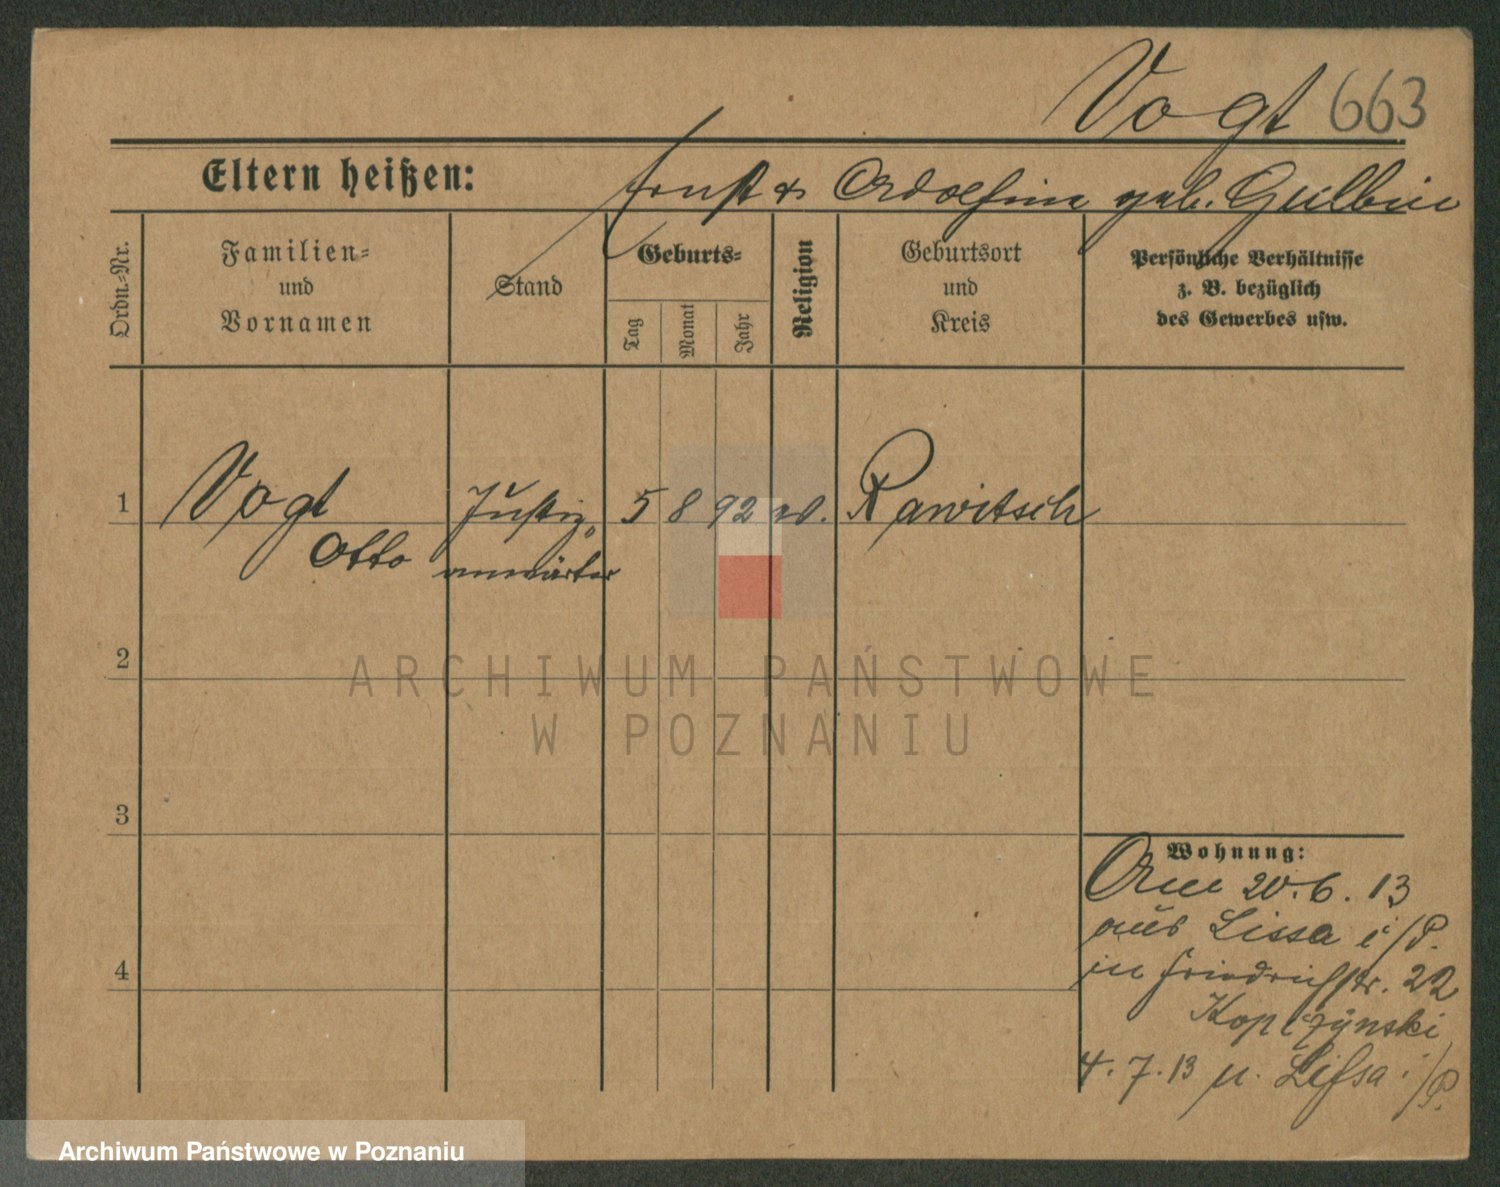 Vogt 663
Eltern heißen: Ernst & Adolfine geb. Gulbin
Ordn.-Nr.
Familien-
und
Vornamen
Stand
Geburts-
Tag
Monat
Jahr
Religion
Geburtsort
und
Kreis
Persönliche Verhältnisse
z. B. bezüglich
des Gewerbes usw.
1 Vogt Justiz„ 5 8 92 Rawitsch
Otto anwärter
2
3
4
Wohnung:
20.6.13
aus Lissa i/P.
in Friedrichstr. 22
Kopczynski
4.7.13 n. Lissa i/P.
ARCHIWUM PAŃSTWOWE
W POZNANIU
Archiwum Państwowe w Poznaniu